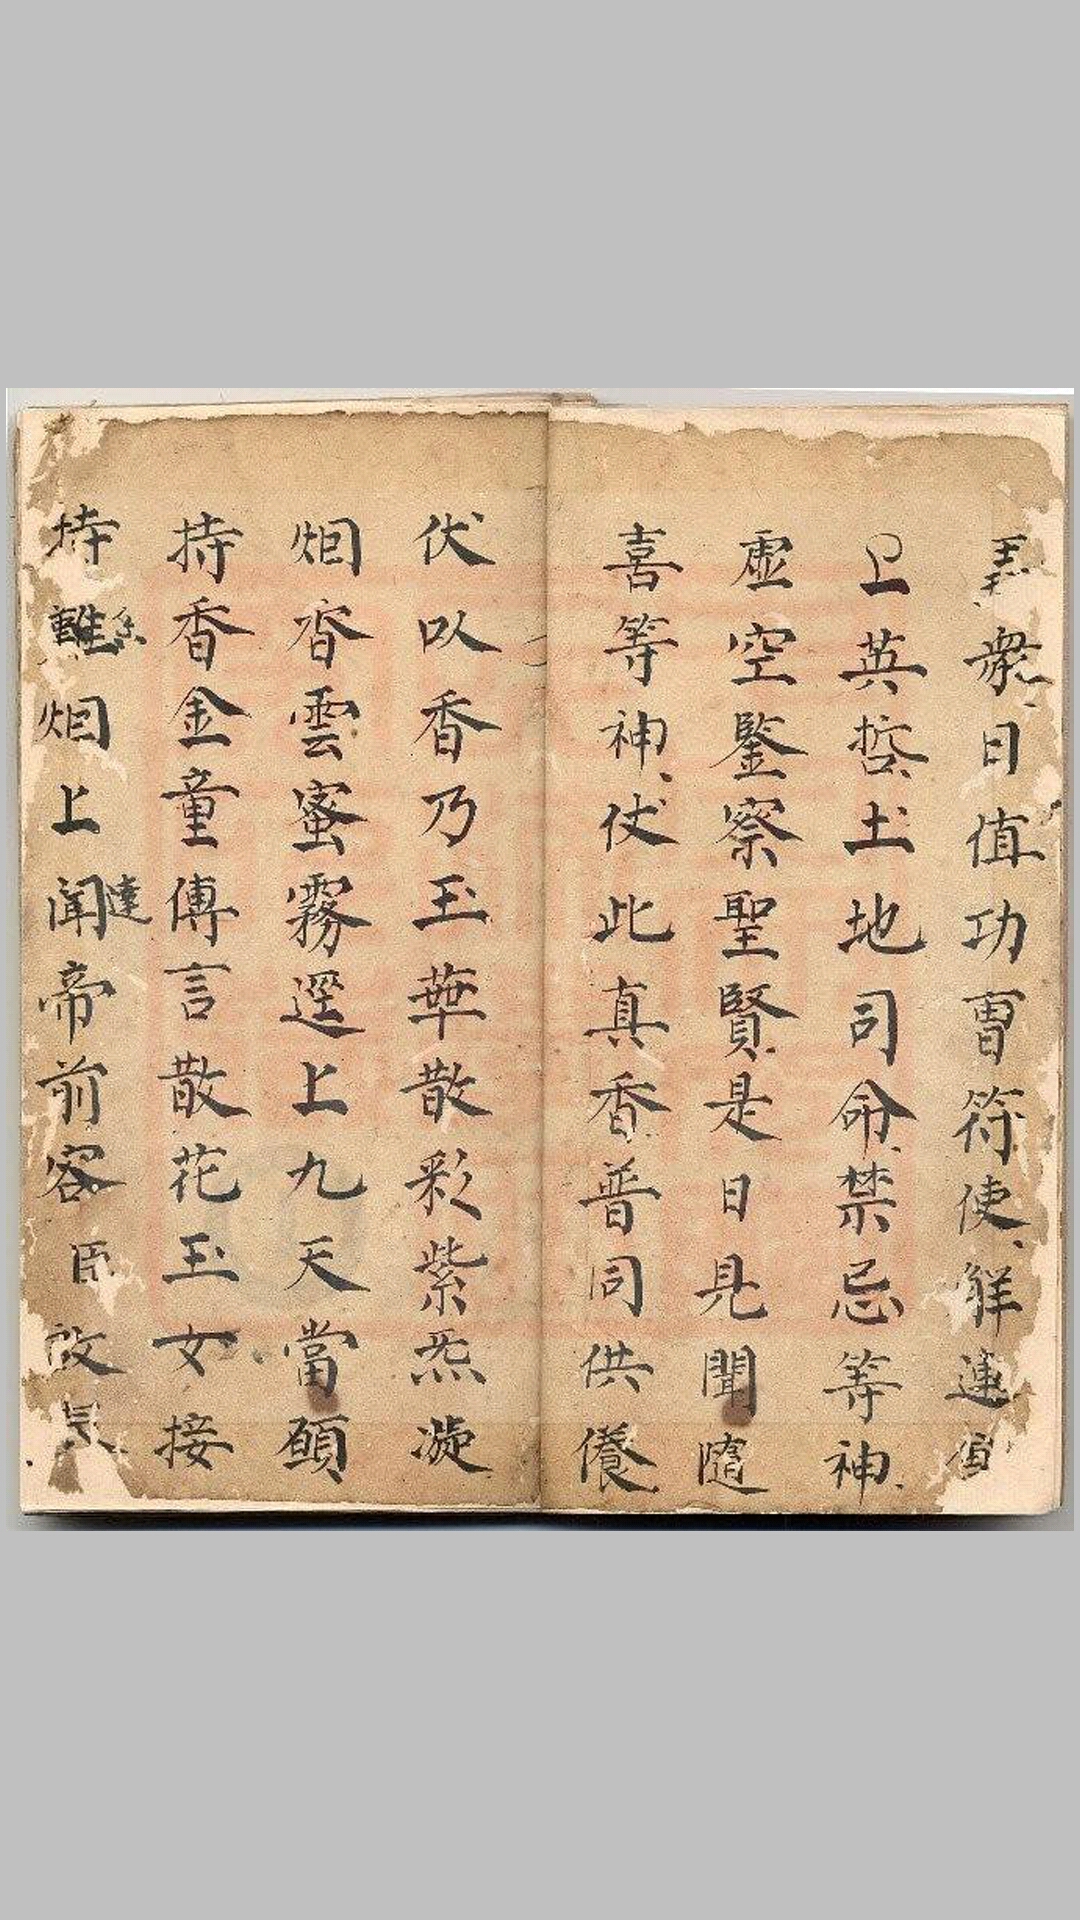 衆日值功曺符使觧運
上英哲土地司命禁忌等神
虛空鑒察聖賢是日見聞隨
喜等神伏此真香普同供養
伏以香乃玉華散彩紫炁凝
烟香雲蜜霧逕上九天當願
持香金童傅言散花玉女接
持 烟上聞達帝前容臣啟